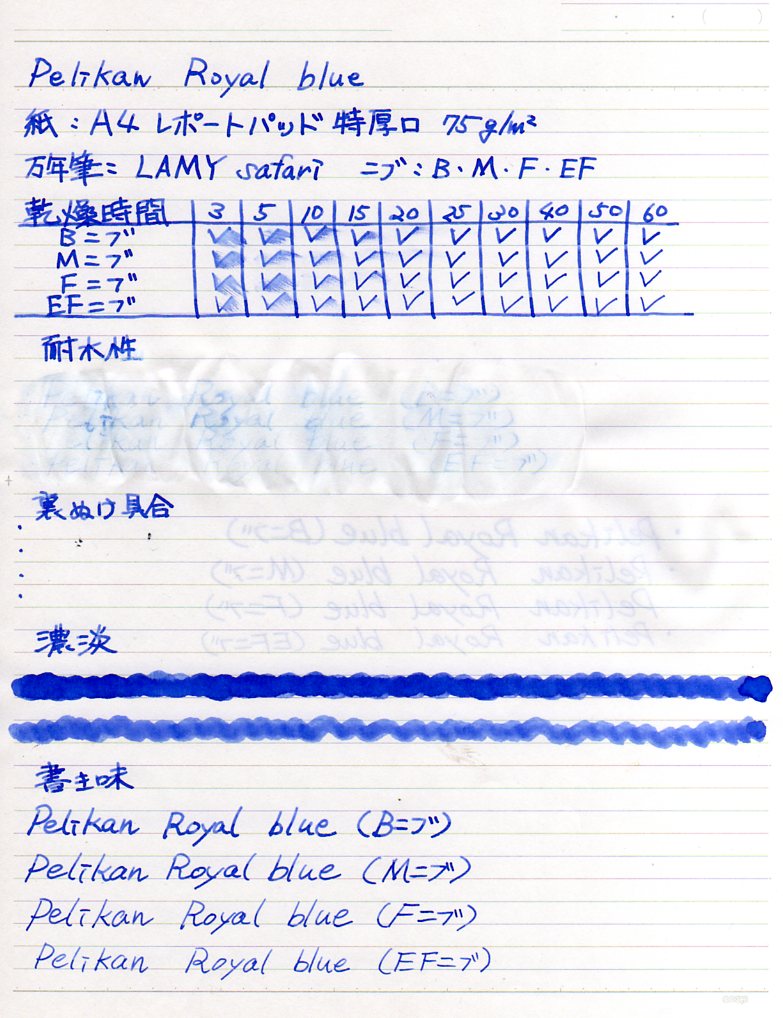 Pelikan Royal blue
紙:A4 レポートパッド 特厚口 75g/m²
万年筆:LAMY safari ニブ:B・M・F・EF
乾燥時間 3 5 10 15 20 25 30 40 50 60
Bニブ ✓ ✓ ✓ ✓ ✓ ✓ ✓ ✓ ✓ ✓
Mニブ ✓ ✓ ✓ ✓ ✓ ✓ ✓ ✓ ✓ ✓
Fニブ ✓ ✓ ✓ ✓ ✓ ✓ ✓ ✓ ✓ ✓
EFニブ ✓ ✓ ✓ ✓ ✓ ✓ ✓ ✓ ✓ ✓
耐水性
Pelikan Royal blue (Bニブ)
Pelikan Royal blue (Mニブ)
Pelikan Royal blue (Fニブ)
Pelikan Royal blue (EFニブ)
裏ぬけ具合
・Pelikan Royal blue (Bニブ)
・Pelikan Royal blue (Mニブ)
・Pelikan Royal blue (Fニブ)
・Pelikan Royal blue (EFニブ)
濃淡
書き味
Pelikan Royal blue (Bニブ)
Pelikan Royal blue (Mニブ)
Pelikan Royal blue (Fニブ)
Pelikan Royal blue (EFニブ)